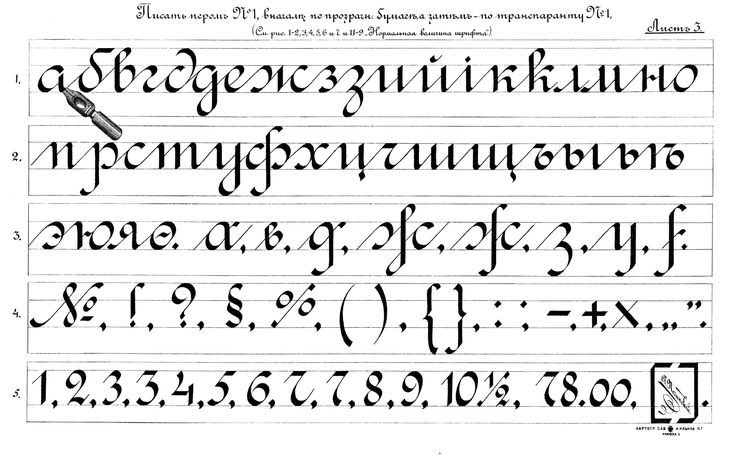 Писать перомъ №1, вначалѣ по прозрачн. бумагѣ, а затѣмъ - по транспаранту №1,
(См. рис. 1-2, 3, 4, 5, 6 и 7 и 11-9 „Нормальная величина шрифта”.)
Листъ 3.
1. а б в г д д е ж з з и й і к к л м н о
2. п р с т у ф х ц ч ш щ ъ ы ь ѣ
3. э ю я ѳ. а, в, д, ж, ж, з, у, f.
4. №, !, ?, §, %, ( ), { }, : ; −, +, х, „ ”.
5. 1, 2, 3, 3, 4, 5, 6, 7, 7, 8, 9, 10½, 78.00, .
КАРТОГР. ЗАВ. А. ИЛЬИНА П. Г.